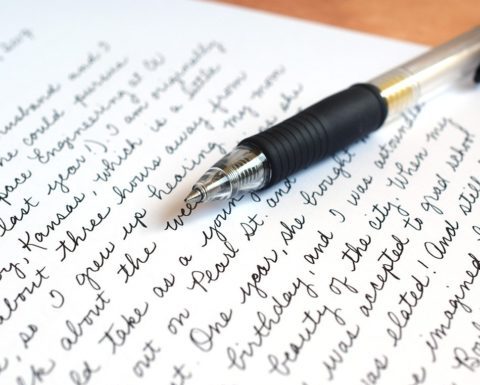 husband and I
he could pursue
space Engineering at CU
last year!) I am originally
, Kansas, which is a little
about three hours away from
, so I grew up hearing my mom
about the she
take as a young
out on Pearl St. and
One year, she brought
birthday, and I was astounded
beauty of the city. When my
was accepted to grad school
was elated! And still
imagined